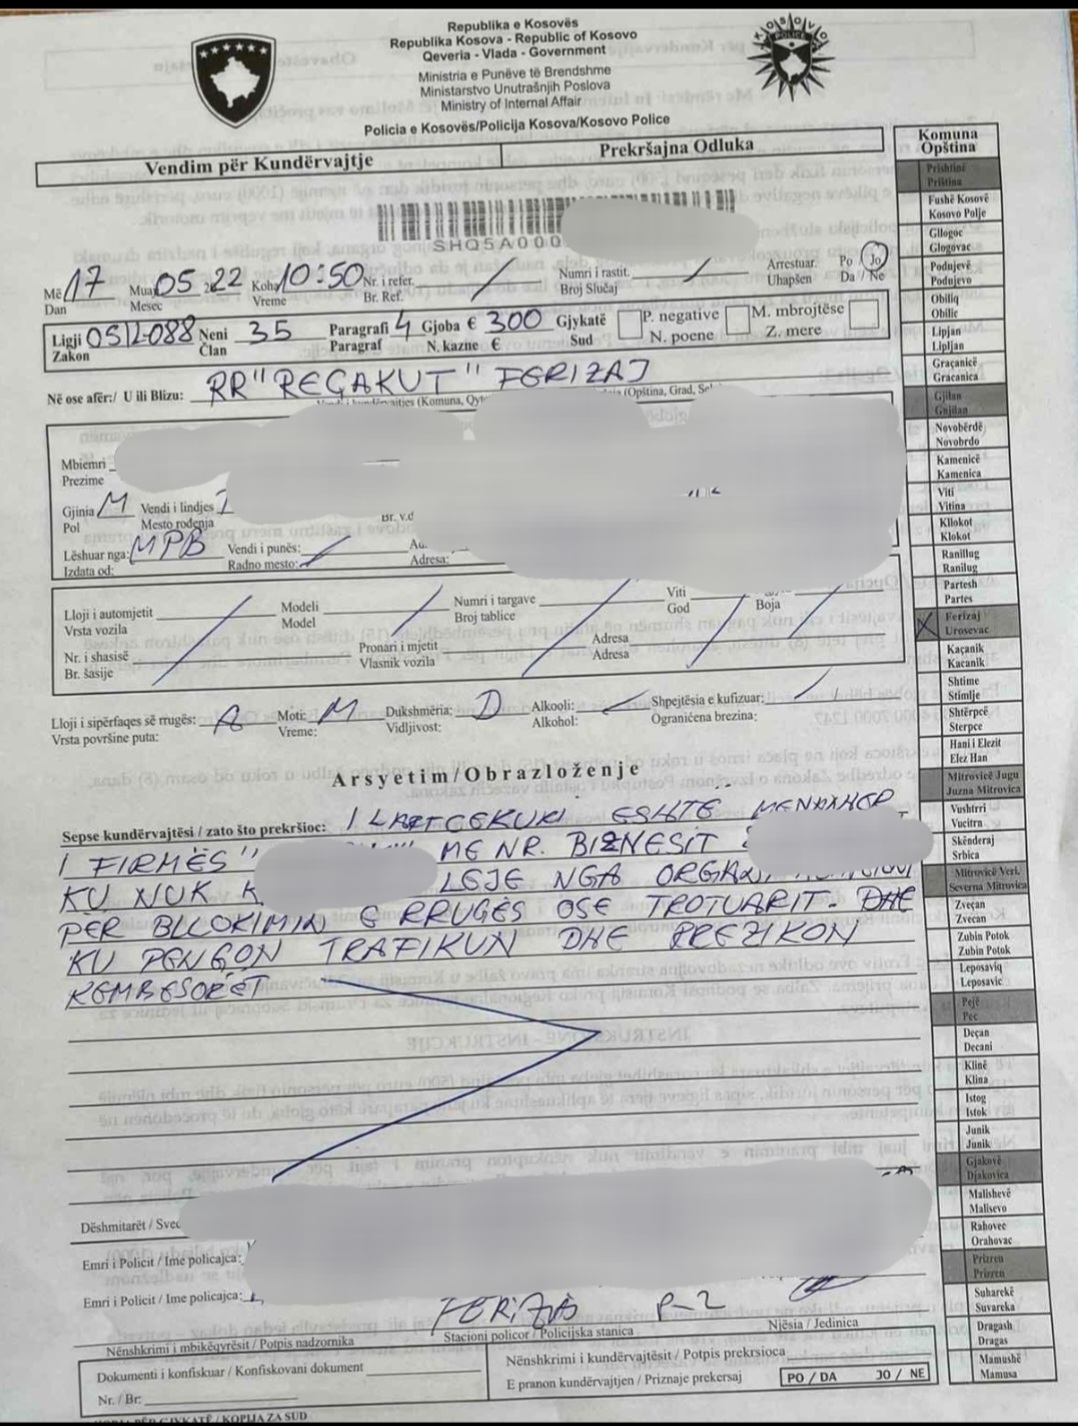 Republika e Kosovës
Republika Kosova - Republic of Kosovo
Qeveria - Vlada - Government
Ministria e Punëve të Brendshme
Ministarstvo Unutrašnjih Poslova
Ministry of Internal Affair
Policia e Kosovës/Policija Kosova/Kosovo Police
KOSOVO
POLICE
Vendim për Kundërvajtje
Prekršajna Odluka
SHQ5A000
Më 17 Mua 05 22 Koha 10:50 Nr. i refer. Numri i rastit. Arrestuar. Po / Jo
Dan Mesec Vreme Br. Ref. Broj Slučaj Uhapšen Da / Ne
Ligji 05/L-088 Neni 35 Paragrafi 4 Gjoba € 300 Gjykatë P. negative M. mbrojtëse
Zakon Član Paragraf N. kazne € Sud N. poene Z. mere
Në ose afër:/ U ili Blizu: RR "REÇAKUT" FERIZAJ
(Komuna, (Opština, Grad,
Mbiemri
Prezime
Gjinia M Vendi i lindjes
Pol Mesto rođenja
Lëshuar nga: MPB Vendi i punës:
Izdata od: Radno mesto: Adresa:
Lloji i automjetit Modeli Numri i targave Viti
Vrsta vozila Model Broj tablice God Boja
Nr. i shasisë Pronari i mjetit Adresa
Br. šasije Vlasnik vozila Adresa
Lloji i sipërfaqes së rrugës: A Moti: M Dukshmëria: D Alkooli: Shpejtësia e kufizuar:
Vrsta površine puta: Vreme: Vidljivost: Alkohol: Ograničena brezina:
Arsyetim/Obrazloženje
Sepse kundërvajtësi / zato što prekršioc: I LARTCEKURI ESHTE MENAXHER
I FIRMËS" ME NR. BIZNESIT
KU NUK K LEJE NGA
PËR BLLOKIMIN E RRUGËS OSE TROTUARIT. DHE
KU PENGON TRAFIKUN DHE RREZIKON
KEMBESORËT
Dëshmitarët /
Emri i Policit / Ime policajca:
Emri i Policit / Ime policajca:
FERIZAJ P-2
Nënshkrimi i mbikëqyrësit / Potpis nadzornika Stacioni policor / Policijska stanica Njësia / Jedinica
Dokumenti i konfiskuar / Konfiskovani dokument
Nr. / Br:
Nënshkrimi i kundërvajtësit / Potpis prekrsioca
E pranon kundërvajtjen / Priznaje prekersaj PO / DA JO / NE
KOPIJA ZA SUD
Komuna
Opština
Prishtinë
Priština
Fushë Kosovë
Kosovo Polje
Gllogoc
Glogovac
Podujevë
Podujevo
Obiliq
Obilic
Lipjan
Lipljan
Graçanicë
Gracanica
Gjilan
Gnjilan
Novobërdë
Novobrdo
Kamenicë
Kamenica
Viti
Vitina
Kllokot
Klokot
Ranillug
Ranilug
Partesh
Partes
Ferizaj
Urosevac
Kaçanik
Kacanik
Shtime
Stimlje
Shtërpcë
Sterpce
Hani i Elezit
Elez Han
Mitrovicë Jugu
Juzna Mitrovica
Vushtrri
Vucitrn
Skënderaj
Srbica
Mitrovicë Veri.
Severna Mitrovica
Zveçan
Zvecan
Zubin Potok
Zubin Potok
Leposaviq
Leposavic
Pejë
Pec
Deçan
Decani
Klinë
Klina
Istog
Istok
Junik
Junik
Gjakovë
Djakovica
Malishevë
Malisevo
Rahovec
Orahovac
Prizren
Prizren
Suharekë
Suvareka
Dragash
Dragas
Mamushë
Mamusa